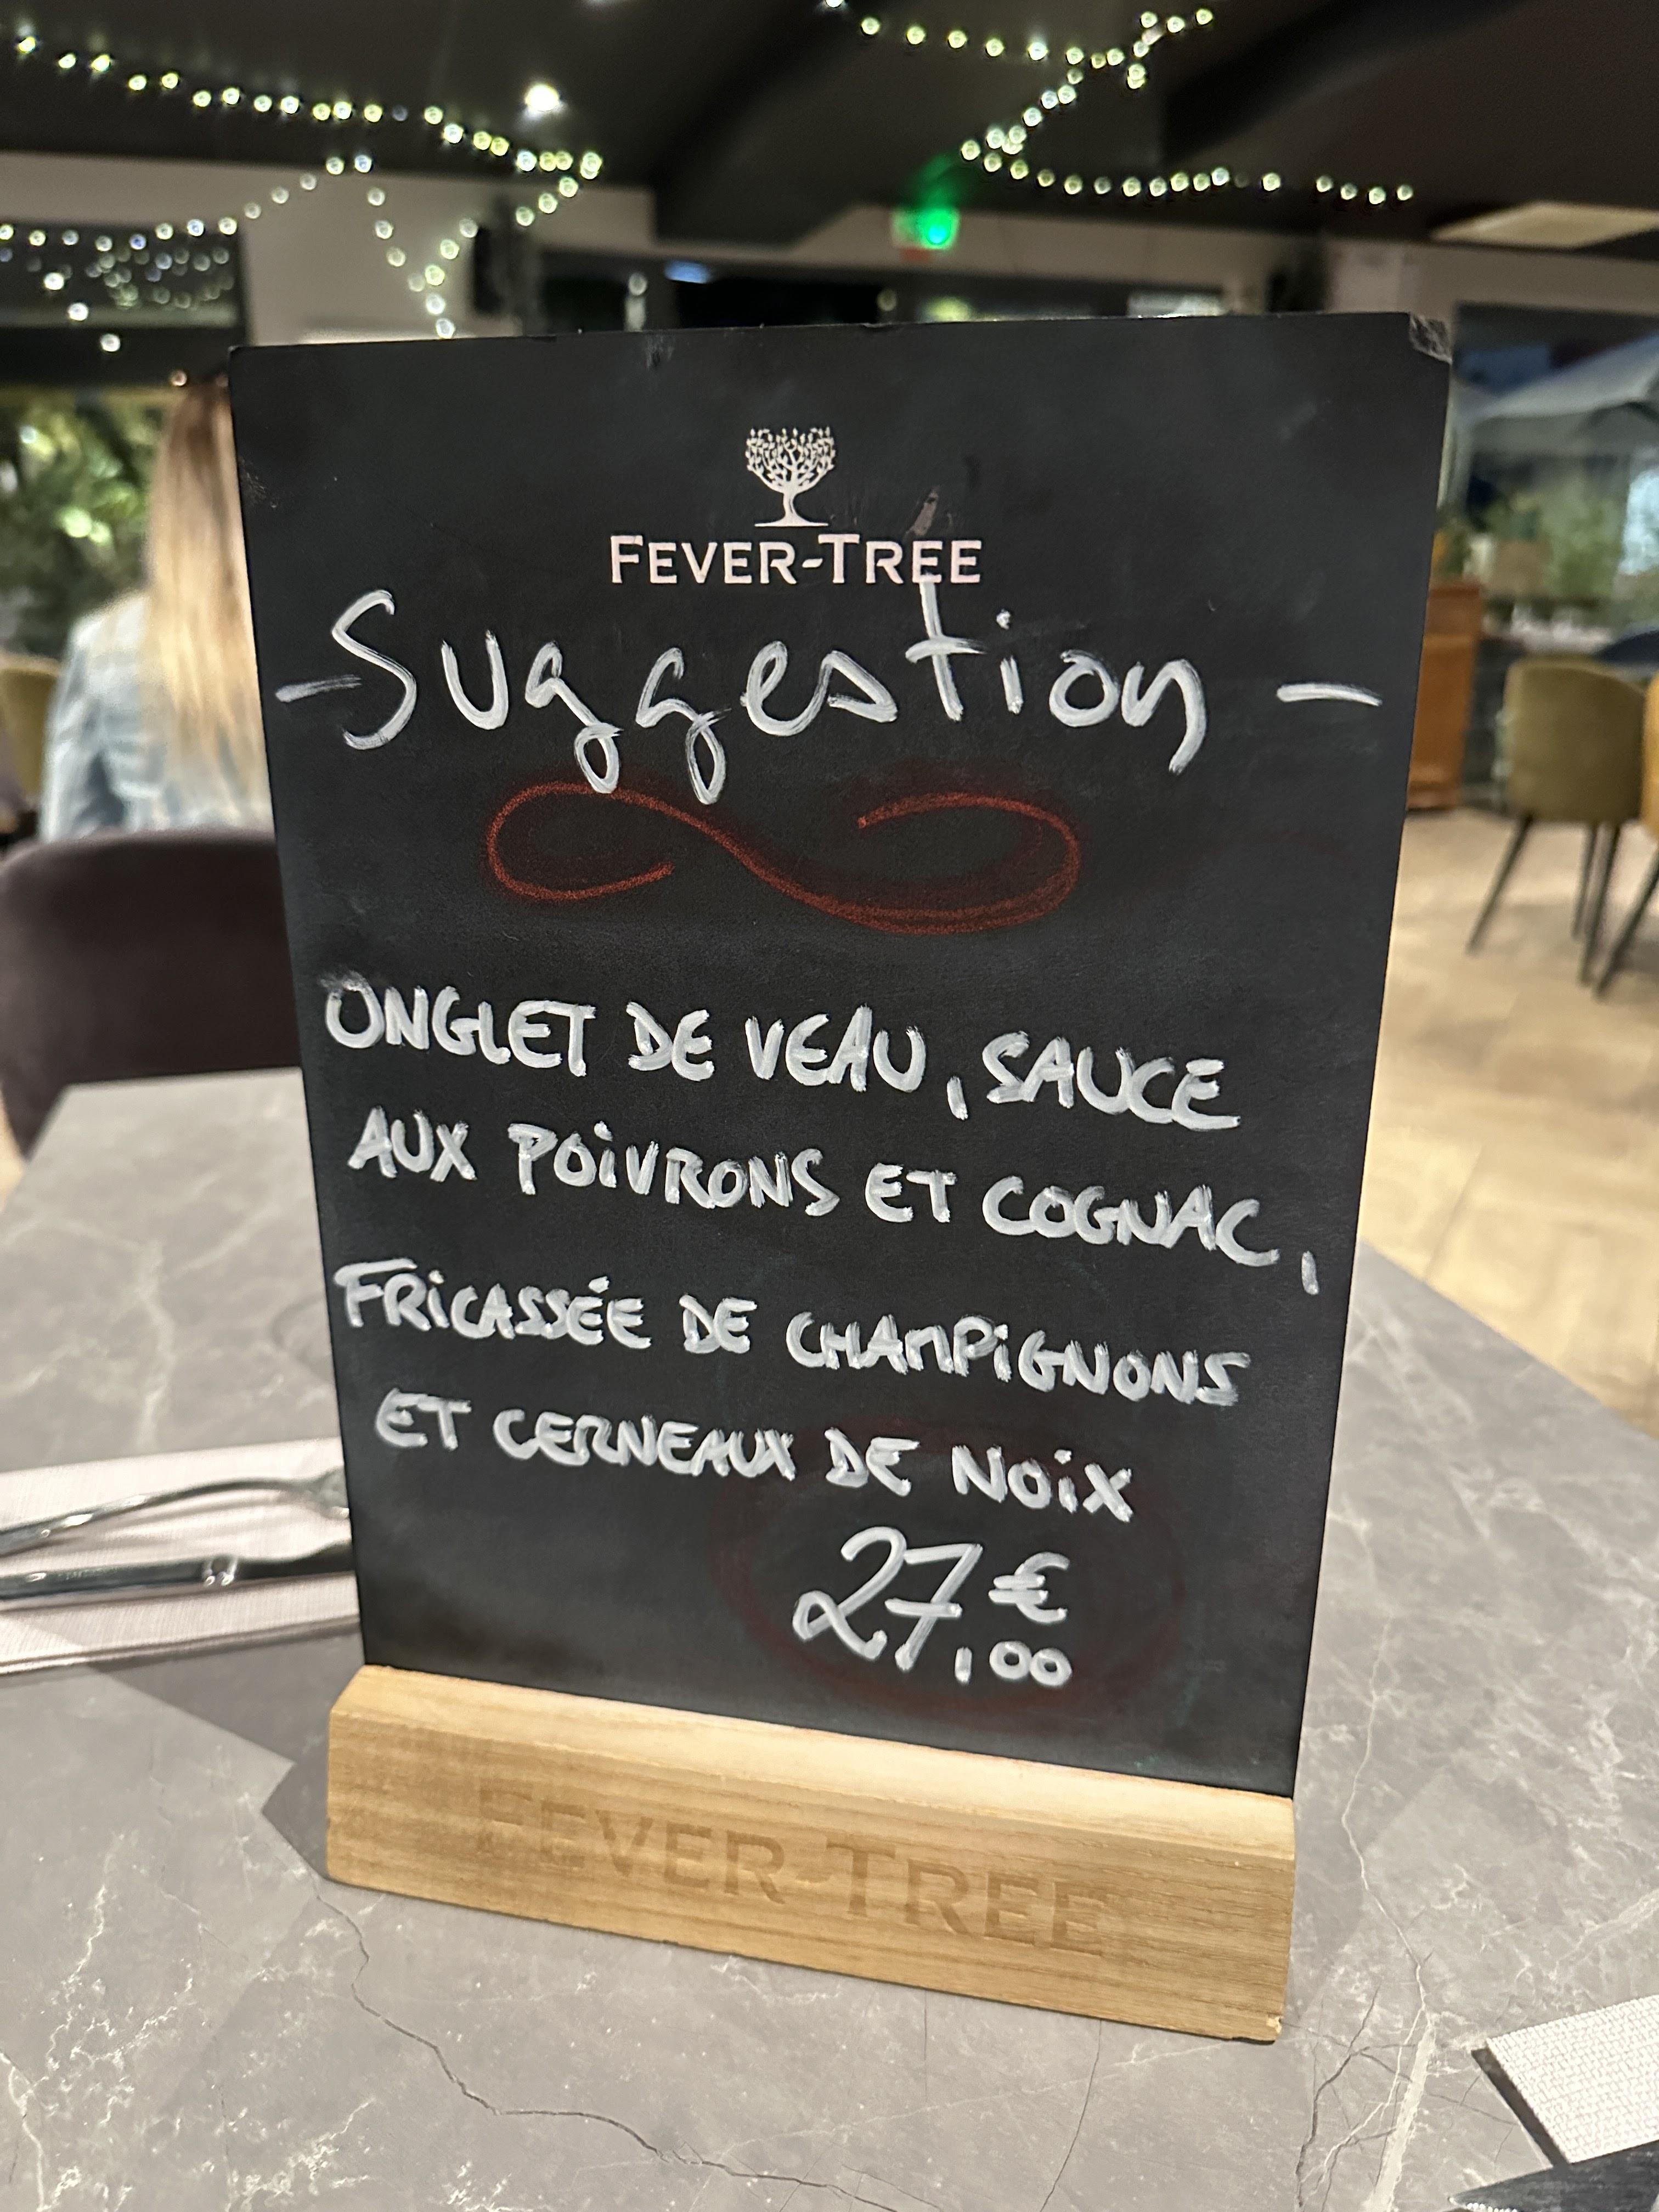 FEVER-TREE
- Suggestion -
ONGLET DE VEAU, SAUCE
AUX POIVRONS ET COGNAC,
FRICASSÉE DE CHAMPIGNONS
ET CERNEAUX DE NOIX
27,00 €
FEVER-TREE